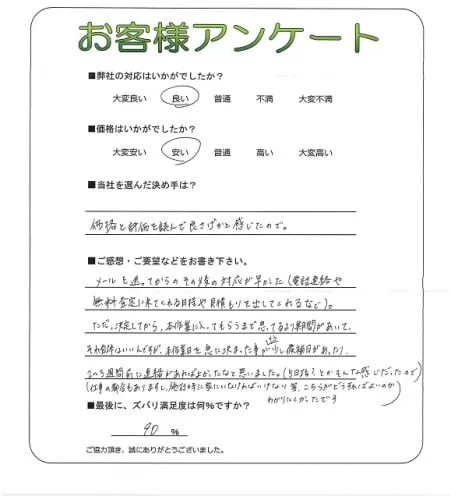 お客様アンケート
■弊社の対応はいかがでしたか？
大変良い 良い 普通 不満 大変不満
■価格はいかがでしたか？
大変安い 安い 普通 高い 大変高い
■当社を選んだ決め手は？
価格と評価を読んで良さげかと感じたので。
■ご感想・ご要望などをお書き下さい。
メールを送ってからのその後の対応が早かった（電話連絡や
無料査定に来てくれる日時や見積もりを出してくれるなど）。
ただ、決定してから、本作業に入ってもらうまで思ってるより期間があいて、
それ自体はいいんですが、本作業日を急に決まった事が少し 候補日があったり、
2~3週間前に連絡があれば良かったなと思いました。（5日後！とかそんな感じだったので）
（仕事の都合もありますし、施設時に家にいなければいけない等、こちらがどうすればよいのか
わかりにくかったです
■最後に、ズバリ満足度は何％ですか？
90 ％
ご協力頂き、誠にありがとうございました。